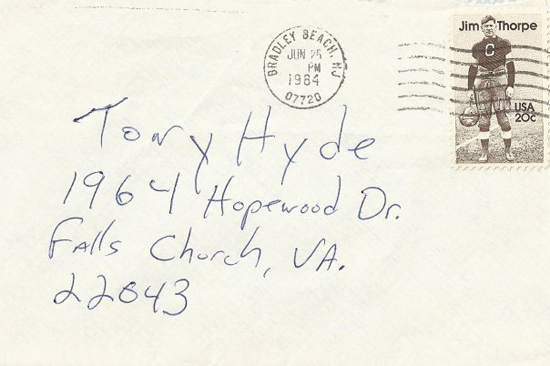 BRADLEY BEACH, NJ
JUN 25
PM
1984
07720
Jim Thorpe
C
USA
20c
Tony Hyde
1964 Hopewood Dr.
Falls Church, VA.
22043